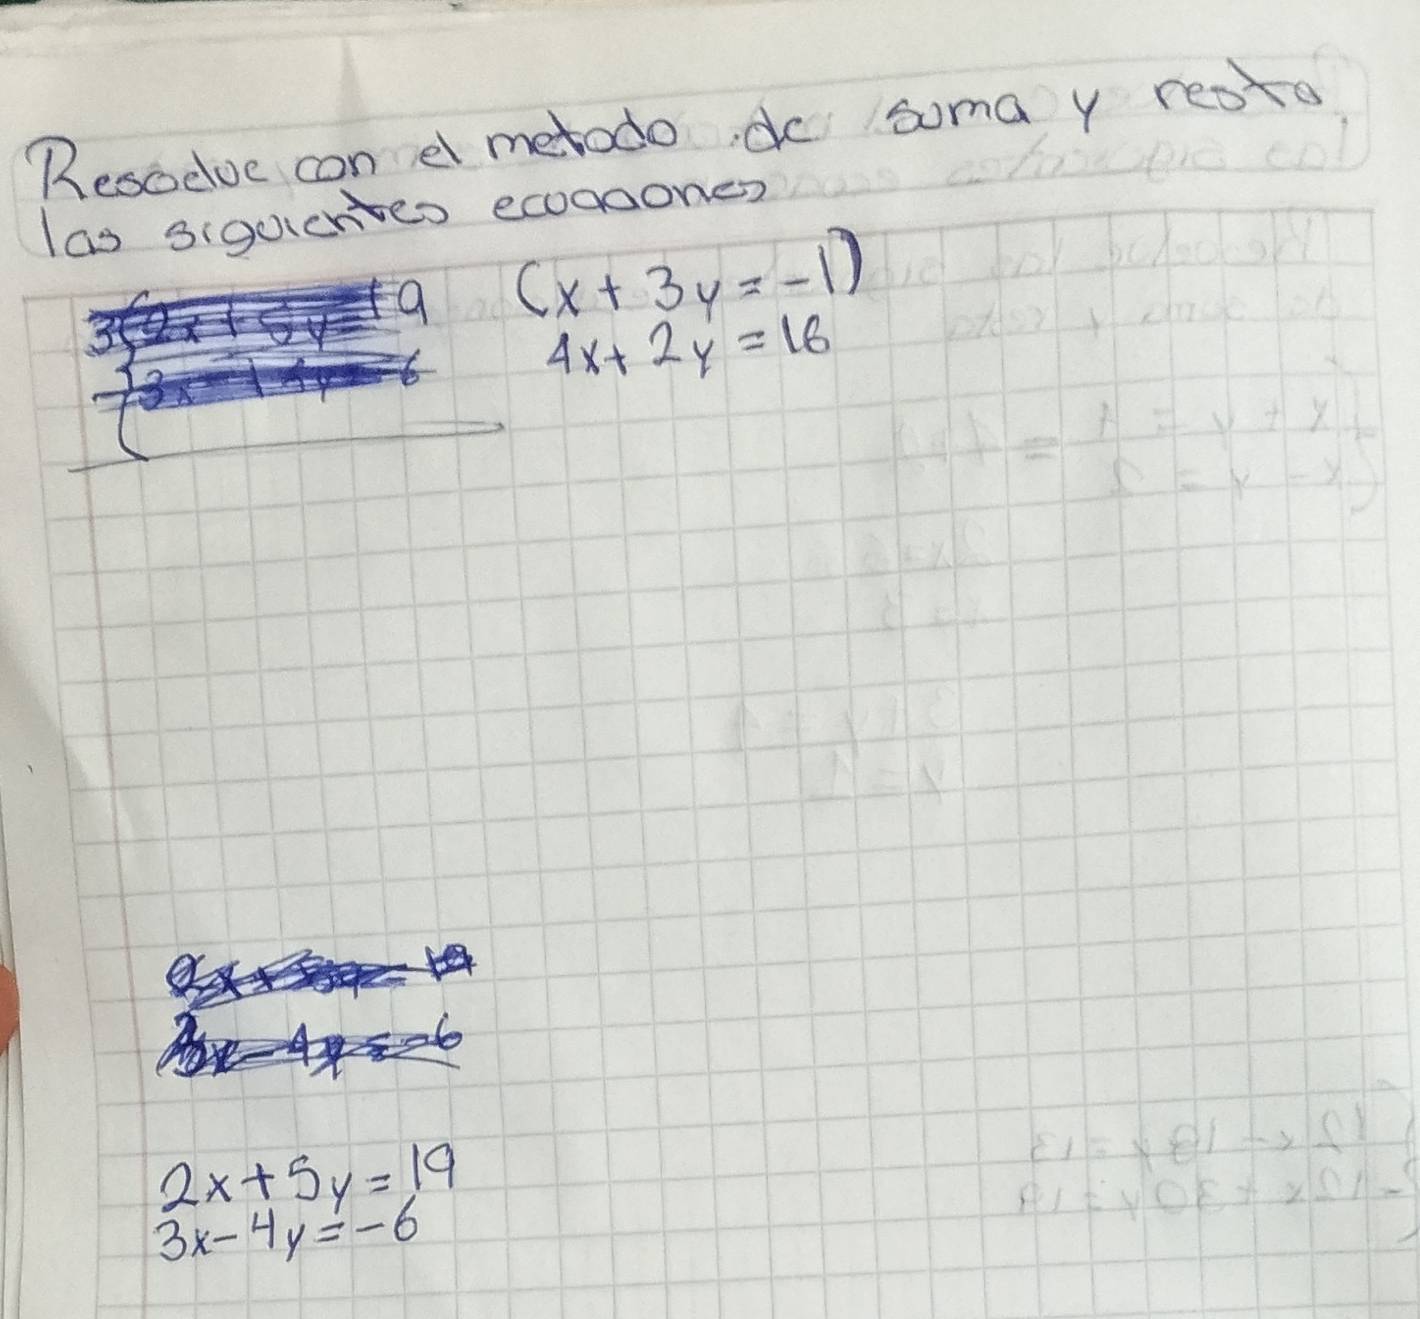 Resuelve con el metodo de suma y resta
las siguientes ecuaciones
(x + 3y = -1)
4x + 2y = 16
2x + 5y = 19
3x - 4y = -6
2x + 5y = 19
3x - 4y = -6